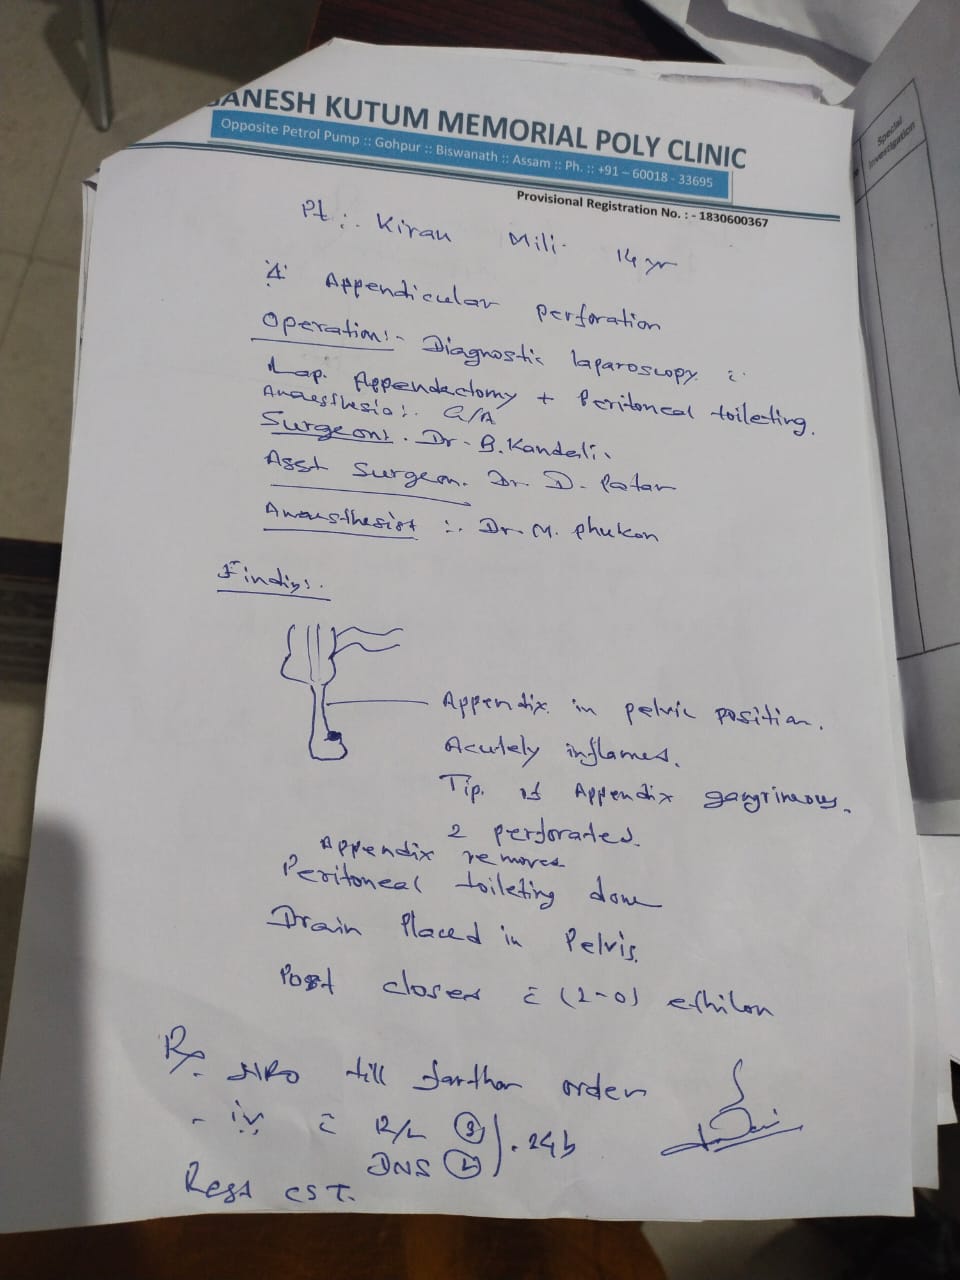 GANESH KUTUM MEMORIAL POLY CLINIC
Opposite Petrol Pump :: Gohpur :: Biswanath :: Assam :: Ph. :: +91 – 60018 - 33695
Provisional Registration No. : - 1830600367
Special
Investigation
Pt :- Kiran Mili 14 yr
Appendicular perforation
Operation :- Diagnostic laparoscopy c̄
Lap. Appendectomy + Peritoneal toileting.
Anaesthesia :. G/A
Surgeon :. Dr. B. Kandali.
Asst Surgeon. Dr. D. Patar
Anaesthesist :. Dr. M. Phukon
Findings.
Appendix in pelvic position.
Acutely inflamed.
Tip of Appendix gangrineous.
2 perforated.
Appendix removed
Peritoneal toileting done
Drain Placed in Pelvis.
Port closed c̄ (2-0) ethilon
Rx.
NPO till farther order
- iv c̄ R/L (3)
DNS (2) ). 24h
Rest CST.